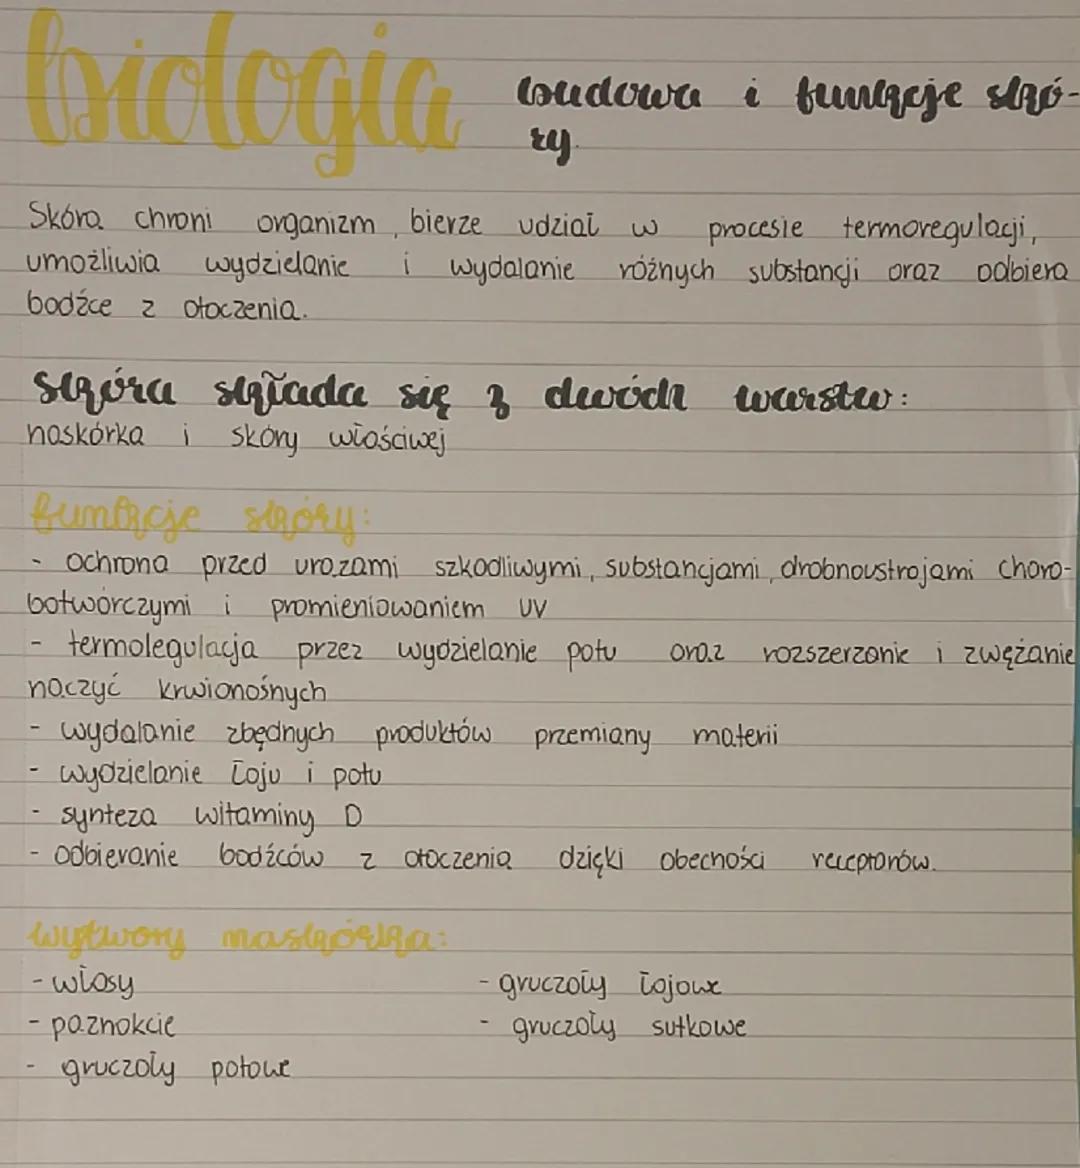 biologia budowa i funkcje skó-
ry.
Skóra chroni organizm, bierze udział w procesie termoregulacji,
umożliwia wydzielanie i wydalanie różnych substancji oraz odbiera
bodźce z otoczenia.
skóra składa się z dwóch warstw:
naskórka i skóry właściwej
funkcje skóry:
- ochrona przed urazami szkodliwymi, substancjami, drobnoustrojami choro-
botwórczymi i promieniowaniem UV
- termolegulacja przez wydzielanie potu oraz rozszerzanie i zwężanie
naczyć krwionośnych
- wydalanie zbędnych produktów przemiany materii
- wydzielanie łoju i potu
- synteza witaminy D
- odbieranie bodźców z otoczenia dzięki obecności receptorów.
wytwory naskórka:
- włosy
- paznokcie
- gruczoły potowe
- gruczoły łojowe
- gruczoły sutkowe